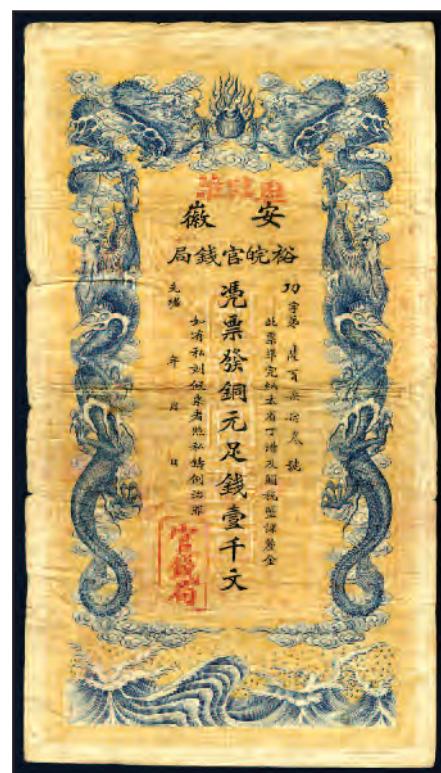 安徽
裕皖官錢局
功字第陸百拾叁號
此票準完納本省丁漕及關稅鹽課釐金
憑票發銅元足錢壹千文
如有私刻假票者照私鑄例治罪
光緒 年 月 日
官錢局